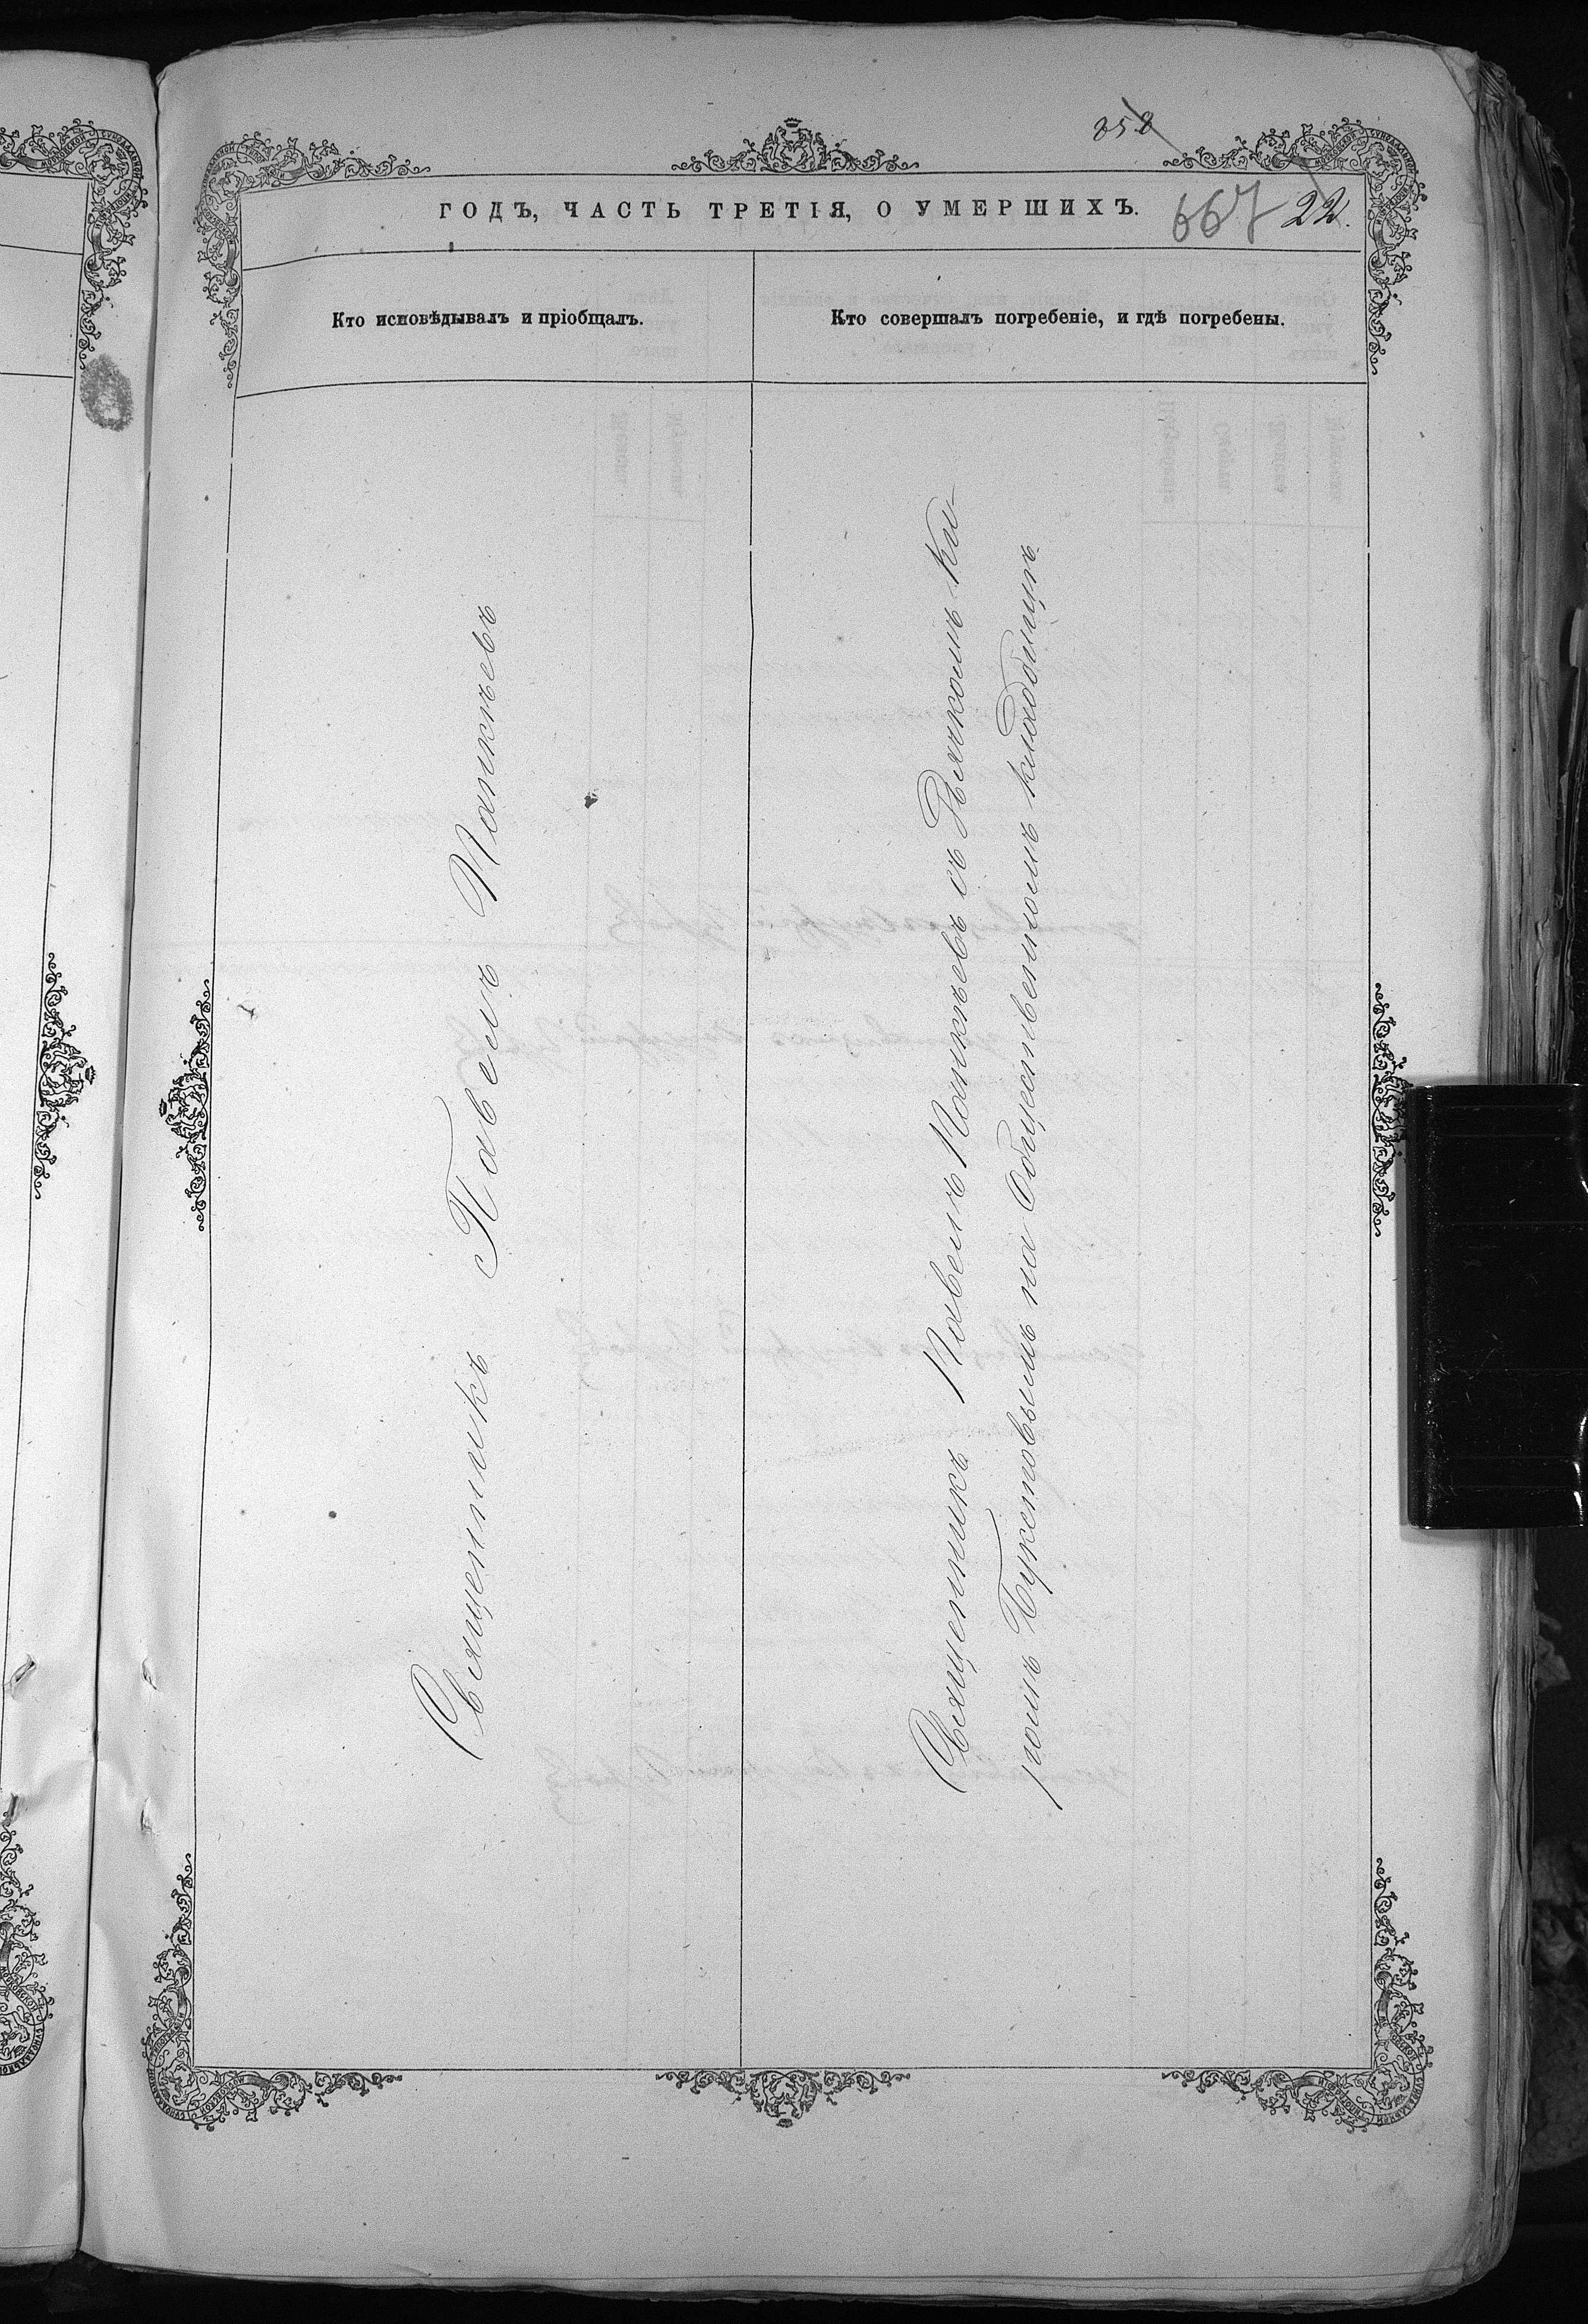 358
ГОДЪ, ЧАСТЬ ТРЕТІЯ, О УМЕРШИХЪ.
667 22.
Кто исповѣдывалъ и пріобщалъ.
Кто совершалъ погребеніе, и гдѣ погребены.
Священникъ Павелъ
Священникъ Павелъ съ
Букетовымъ на Общественномъ кладбищѣ